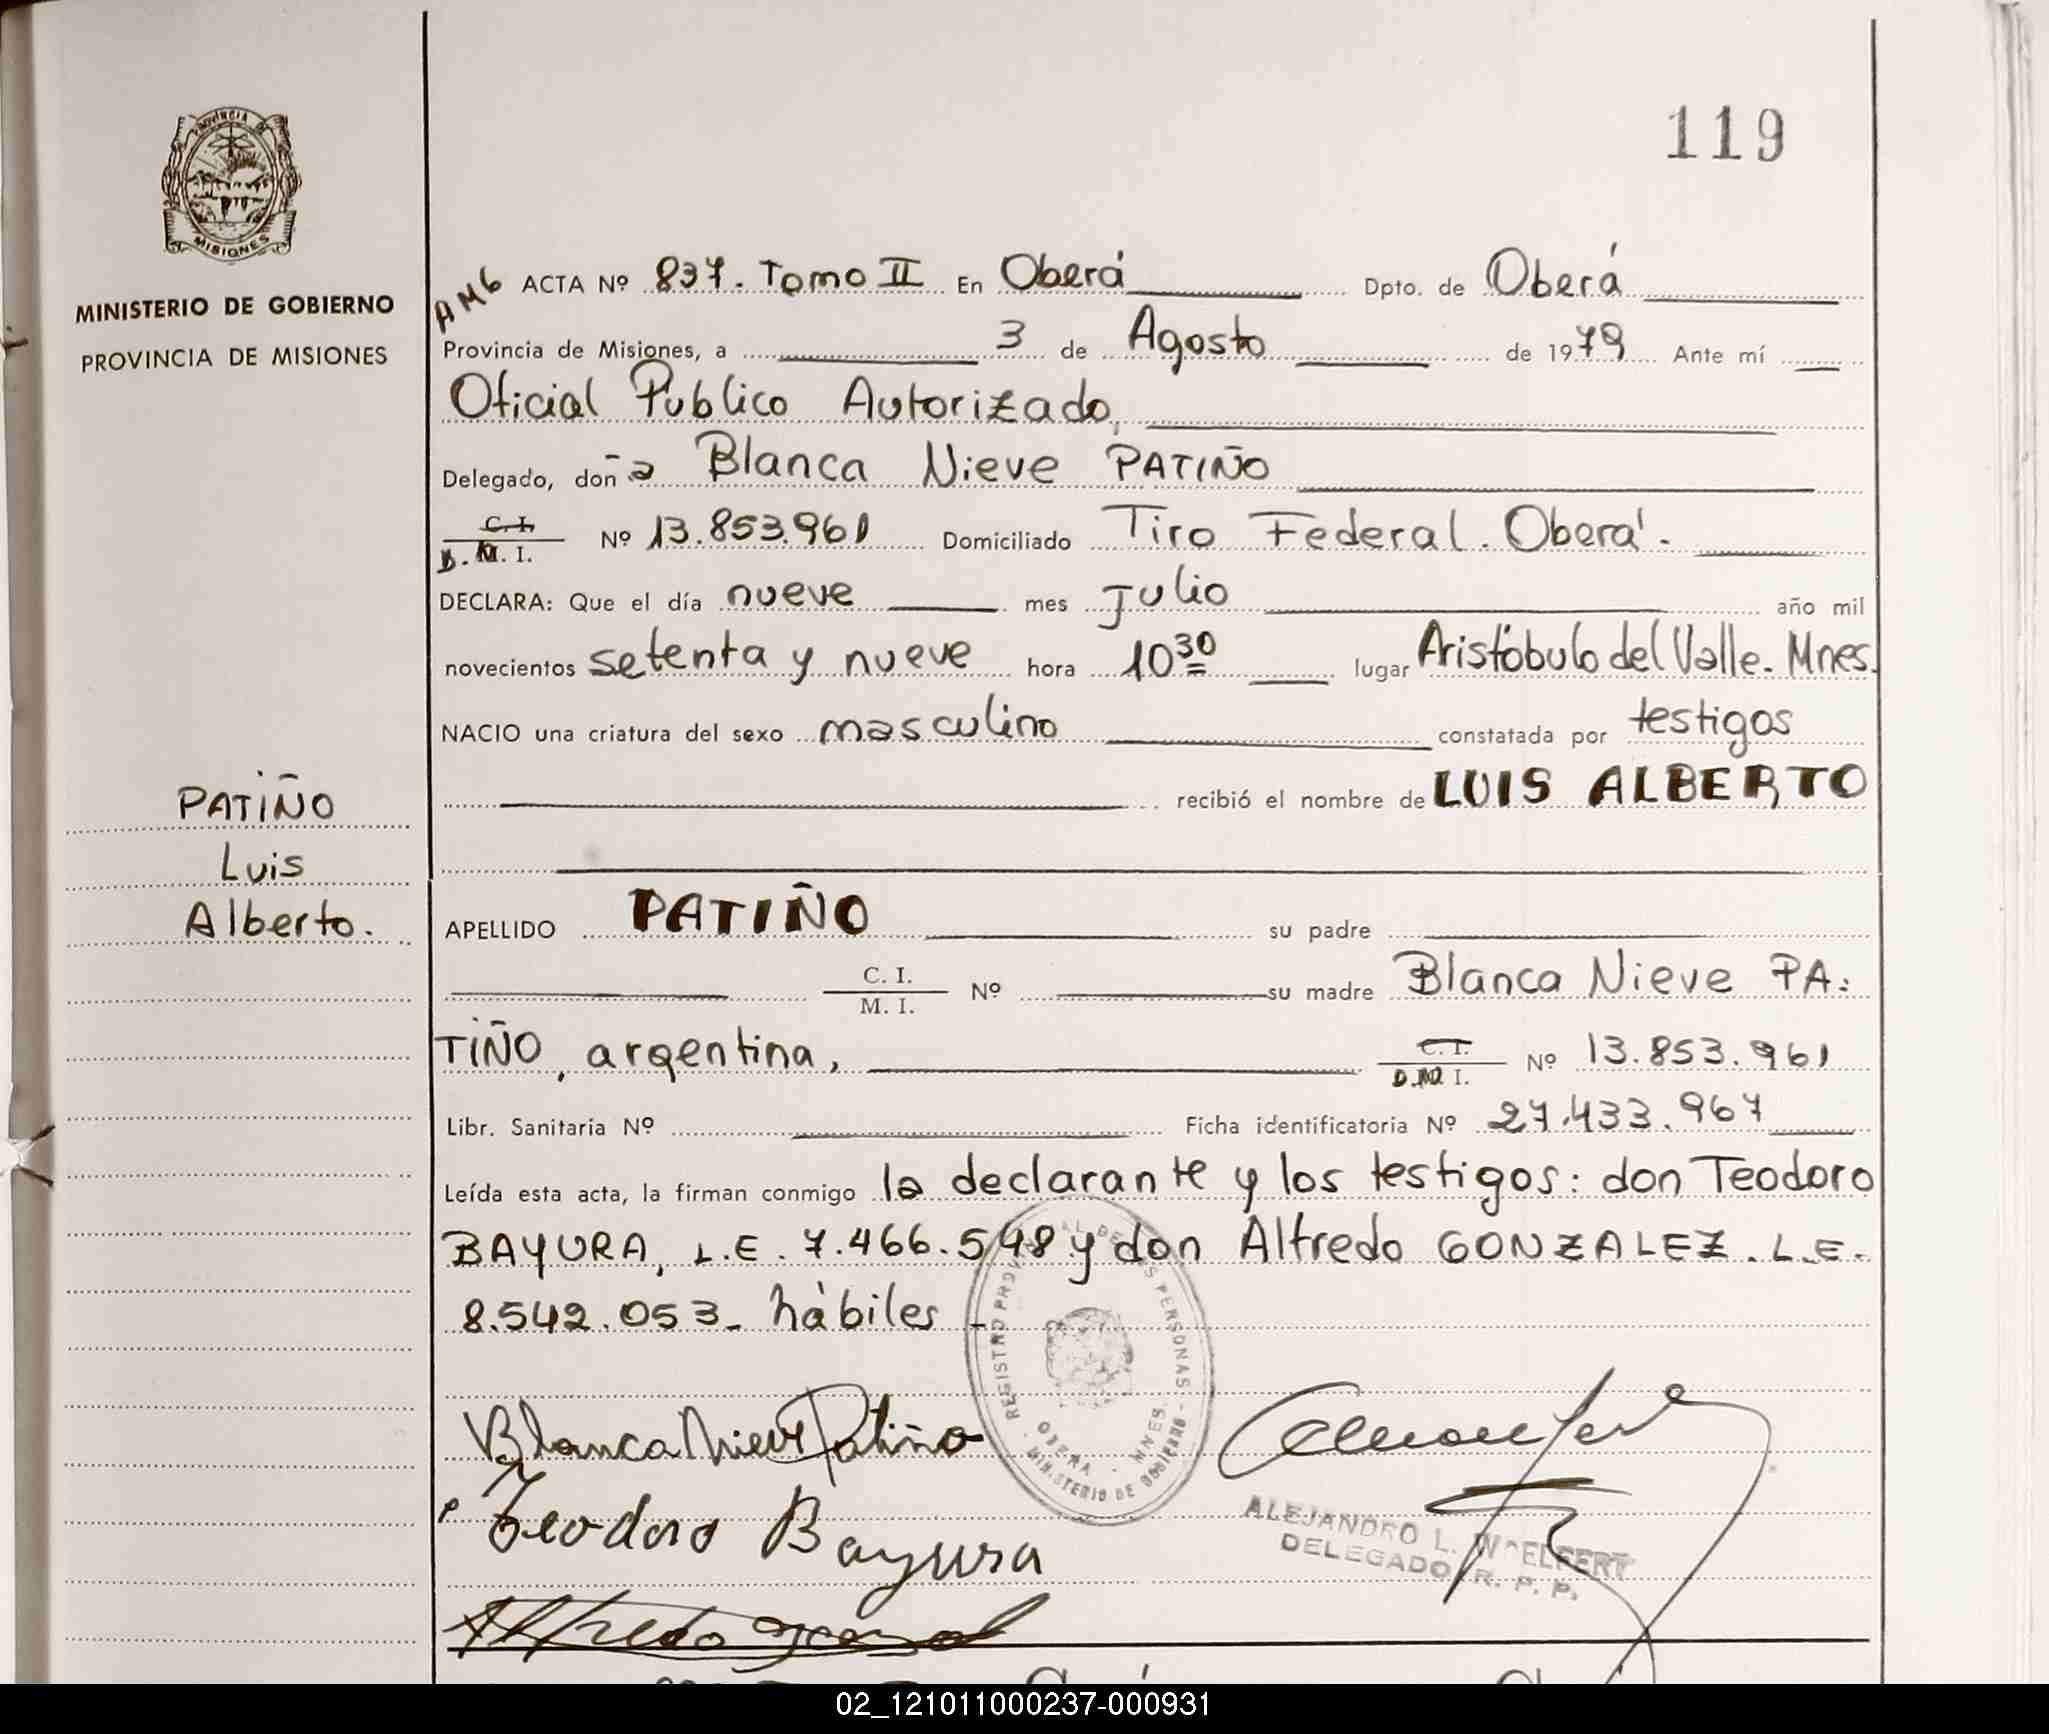 119
PROVINCIA DE
MISIONES
MINISTERIO DE GOBIERNO
PROVINCIA DE MISIONES
PATIÑO
Luis
Alberto.
AMG ACTA Nº 837. Tomo II En Oberá Dpto. de Oberá
Provincia de Misiones, a 3 de Agosto de 1979 Ante mí
Oficial Publico Autorizado,
Delegado, doña Blanca Nieve PATIÑO
C. I.
D. M. I. Nº 13.853.961 Domiciliado Tiro Federal. Oberá.
DECLARA: Que el día nueve mes Julio año mil
novecientos setenta y nueve hora 10 30 lugar Aristóbulo del Valle. Mnes.
NACIO una criatura del sexo masculino constatada por testigos
recibió el nombre de LUIS ALBERTO
APELLIDO PATIÑO su padre
C. I.
M. I. Nº su madre Blanca Nieve PA:
TIÑO, argentina, C. I.
D.M. I. Nº 13.853.961
Libr. Sanitaria Nº Ficha identificatoria Nº 27.433.967
Leída esta acta, la firman conmigo la declarante y los testigos: don Teodoro
BAYURA, L.E. 7.466.548 y don Alfredo GONZALEZ. L.E.
8.542.053_ hábiles -
REGISTRO PROVINCIAL DE LAS PERSONAS -
OBERA - MNES.
MINISTERIO DE GOBIERNO -
Blanca Nieve Patiño
Teodoro Bayura
ALEJANDRO L. WOELFERT
DELEGADO R. P. P.
Alfredo
02_121011000237-000931